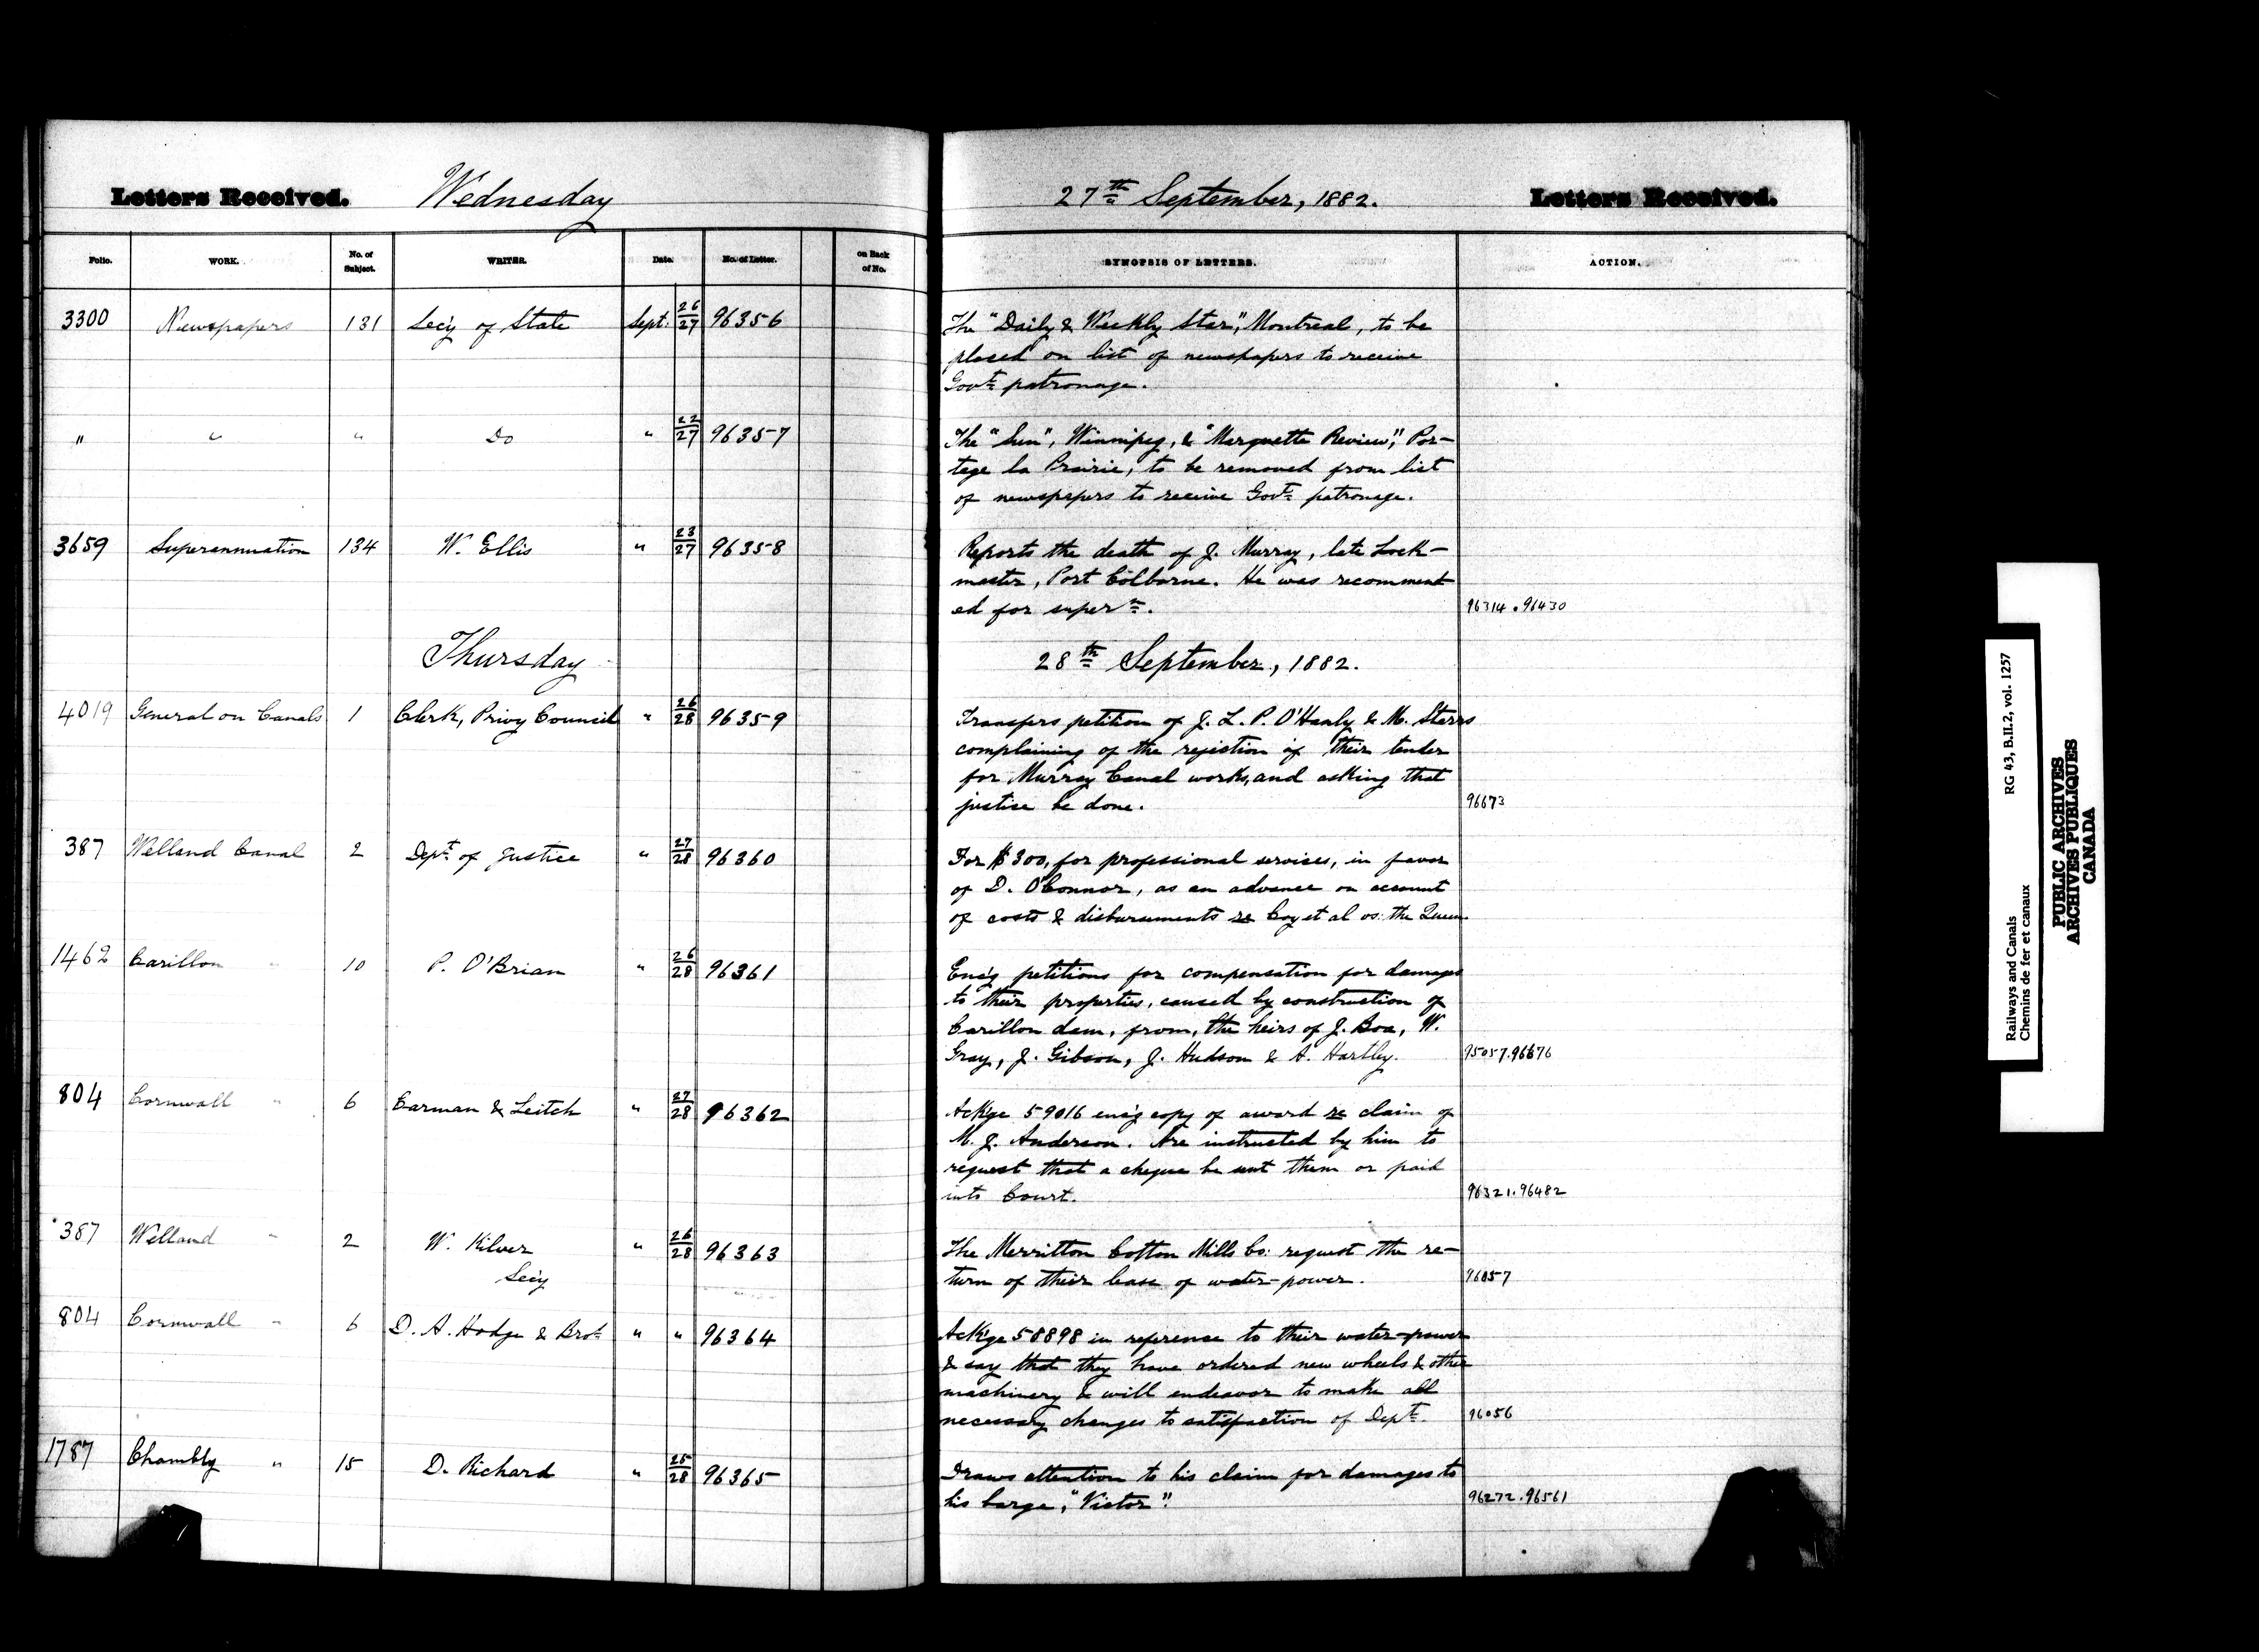 Letters Received. Wednesday 27th September, 1882. Letters Received.
Folio. WORK. No. of Subject. WRITER. Date. No. of Letter. on Back of No. SYNOPSIS OF LETTERS. ACTION.
3300 Newspapers 131 Sec'y of State Sept. 26/27 96356 The "Daily & Weekly Star", Montreal, to be
placed on list of newspapers to receive
Govt patronage.
" " " Do " 22/27 96357 The "Sun", Winnipeg, & "Marquette Review", Por-
tage la Prairie, to be removed from list
of newspapers to receive Govt patronage.
3659 Superannuation 134 W. Ellis " 23/27 96358 Reports the death of J. Murray, late Lock-
master, Port Colborne. He was recomment
ed for supern. 96314.96430
Thursday 28th September, 1882.
4019 General on Canals 1 Clerk, Privy Council " 26/28 96359 Transfers petition of J. L. P. O'Hanly & M. Starrs
complaining of the rejection of their tender
for Murray Canal works, and asking that
justice be done. 96673
387 Welland Canal 2 Dept of Justice " 27/28 96360 For $300, for professional services, in favor
of D. O'Connor, as an advance on account
of costs & disbursements re Coy et al vs: the Queen
1462 Carillon " 10 P. O'Brian " 26/28 96361 Enc'g petitions for compensation for damages
to their properties, caused by construction of
Carillon dam, from, the heirs of J. Boa, W.
Gray, J. Gibson, J. Hudson & A. Hartley. 95057.96676
804 Cornwall " 6 Carman & Leitch " 27/28 96362 Ack'ge 59016 enc'g copy of award re claim of
M. J. Anderson. Are instructed by him to
request that a cheque be sent them or paid
into Court. 96321.96482
387 Welland " 2 W. Kilver " 26/28 96363 The Merritton Cotton Mills Co: request the re-
Sec'y turn of their lease of water-power. 96057
804 Cornwall " 6 D. A. Hodge & Bro. " " 96364 Ack'ge 58898 in reference to their water-power
& say that they have ordered new wheels & other
machinery & will endeavor to make all
necessary changes to satisfaction of Dept. 96056
1787 Chambly " 15 D. Richard " 25/28 96365 Draws attention to his claim for damages to
his barge, "Victor". 96272.96561
Railways and Canals RG 43, B.II.2, vol. 1257
Chemins de fer et canaux
PUBLIC ARCHIVES
ARCHIVES PUBLIQUES
CANADA